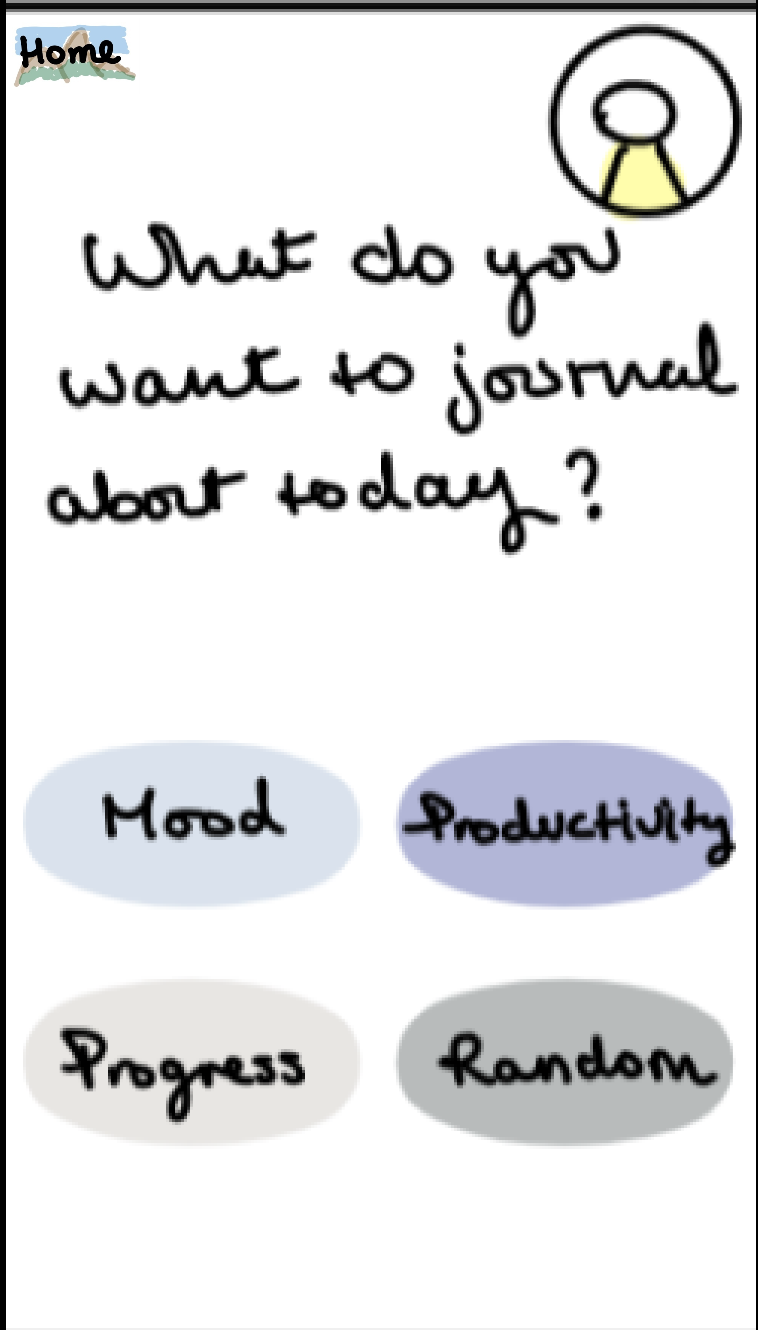 Home
What do you
want to journal
about today?
Mood
Productivity
Progress
Random